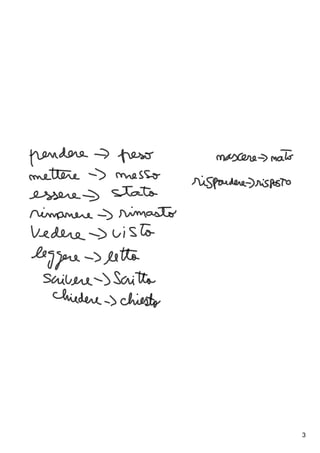 prendere → preso
mettere → messo
essere → stato
rimanere → rimasto
vedere → visto
leggere → letto
scrivere → scritto
chiedere → chiesto
nascere → nato
rispondere → risposto
3